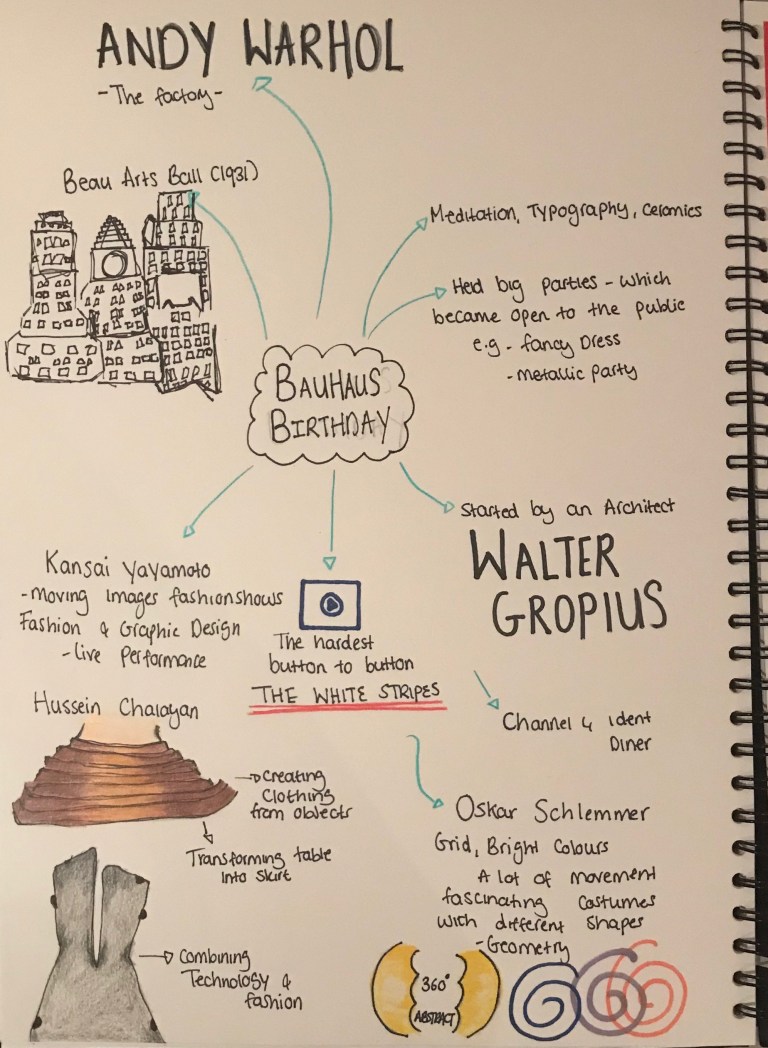 ANDY WARHOL
-The factory-
Beau Arts Ball (1931)
Meditation, Typography, Ceramics
Held big parties - which
became open to the public
e.g - fancy Dress
- metallic party
BAUHAUS
BIRTHDAY
Started by an Architect
WALTER
GROPIUS
Kansai Yayamoto
-moving images fashionshows
Fashion & Graphic Design
-Live Performance
The hardest
button to button
THE WHITE STRIPES
Hussein Chalayan
Creating
Clothing
from objects
Transforming table
into skirt
Combining
Technology &
fashion
Channel 4 ident
Diner
Oskar Schlemmer
Grid, Bright Colours
A lot of movement
fascinating costumes
with different shapes
-Geometry
360°
ABSTRACT